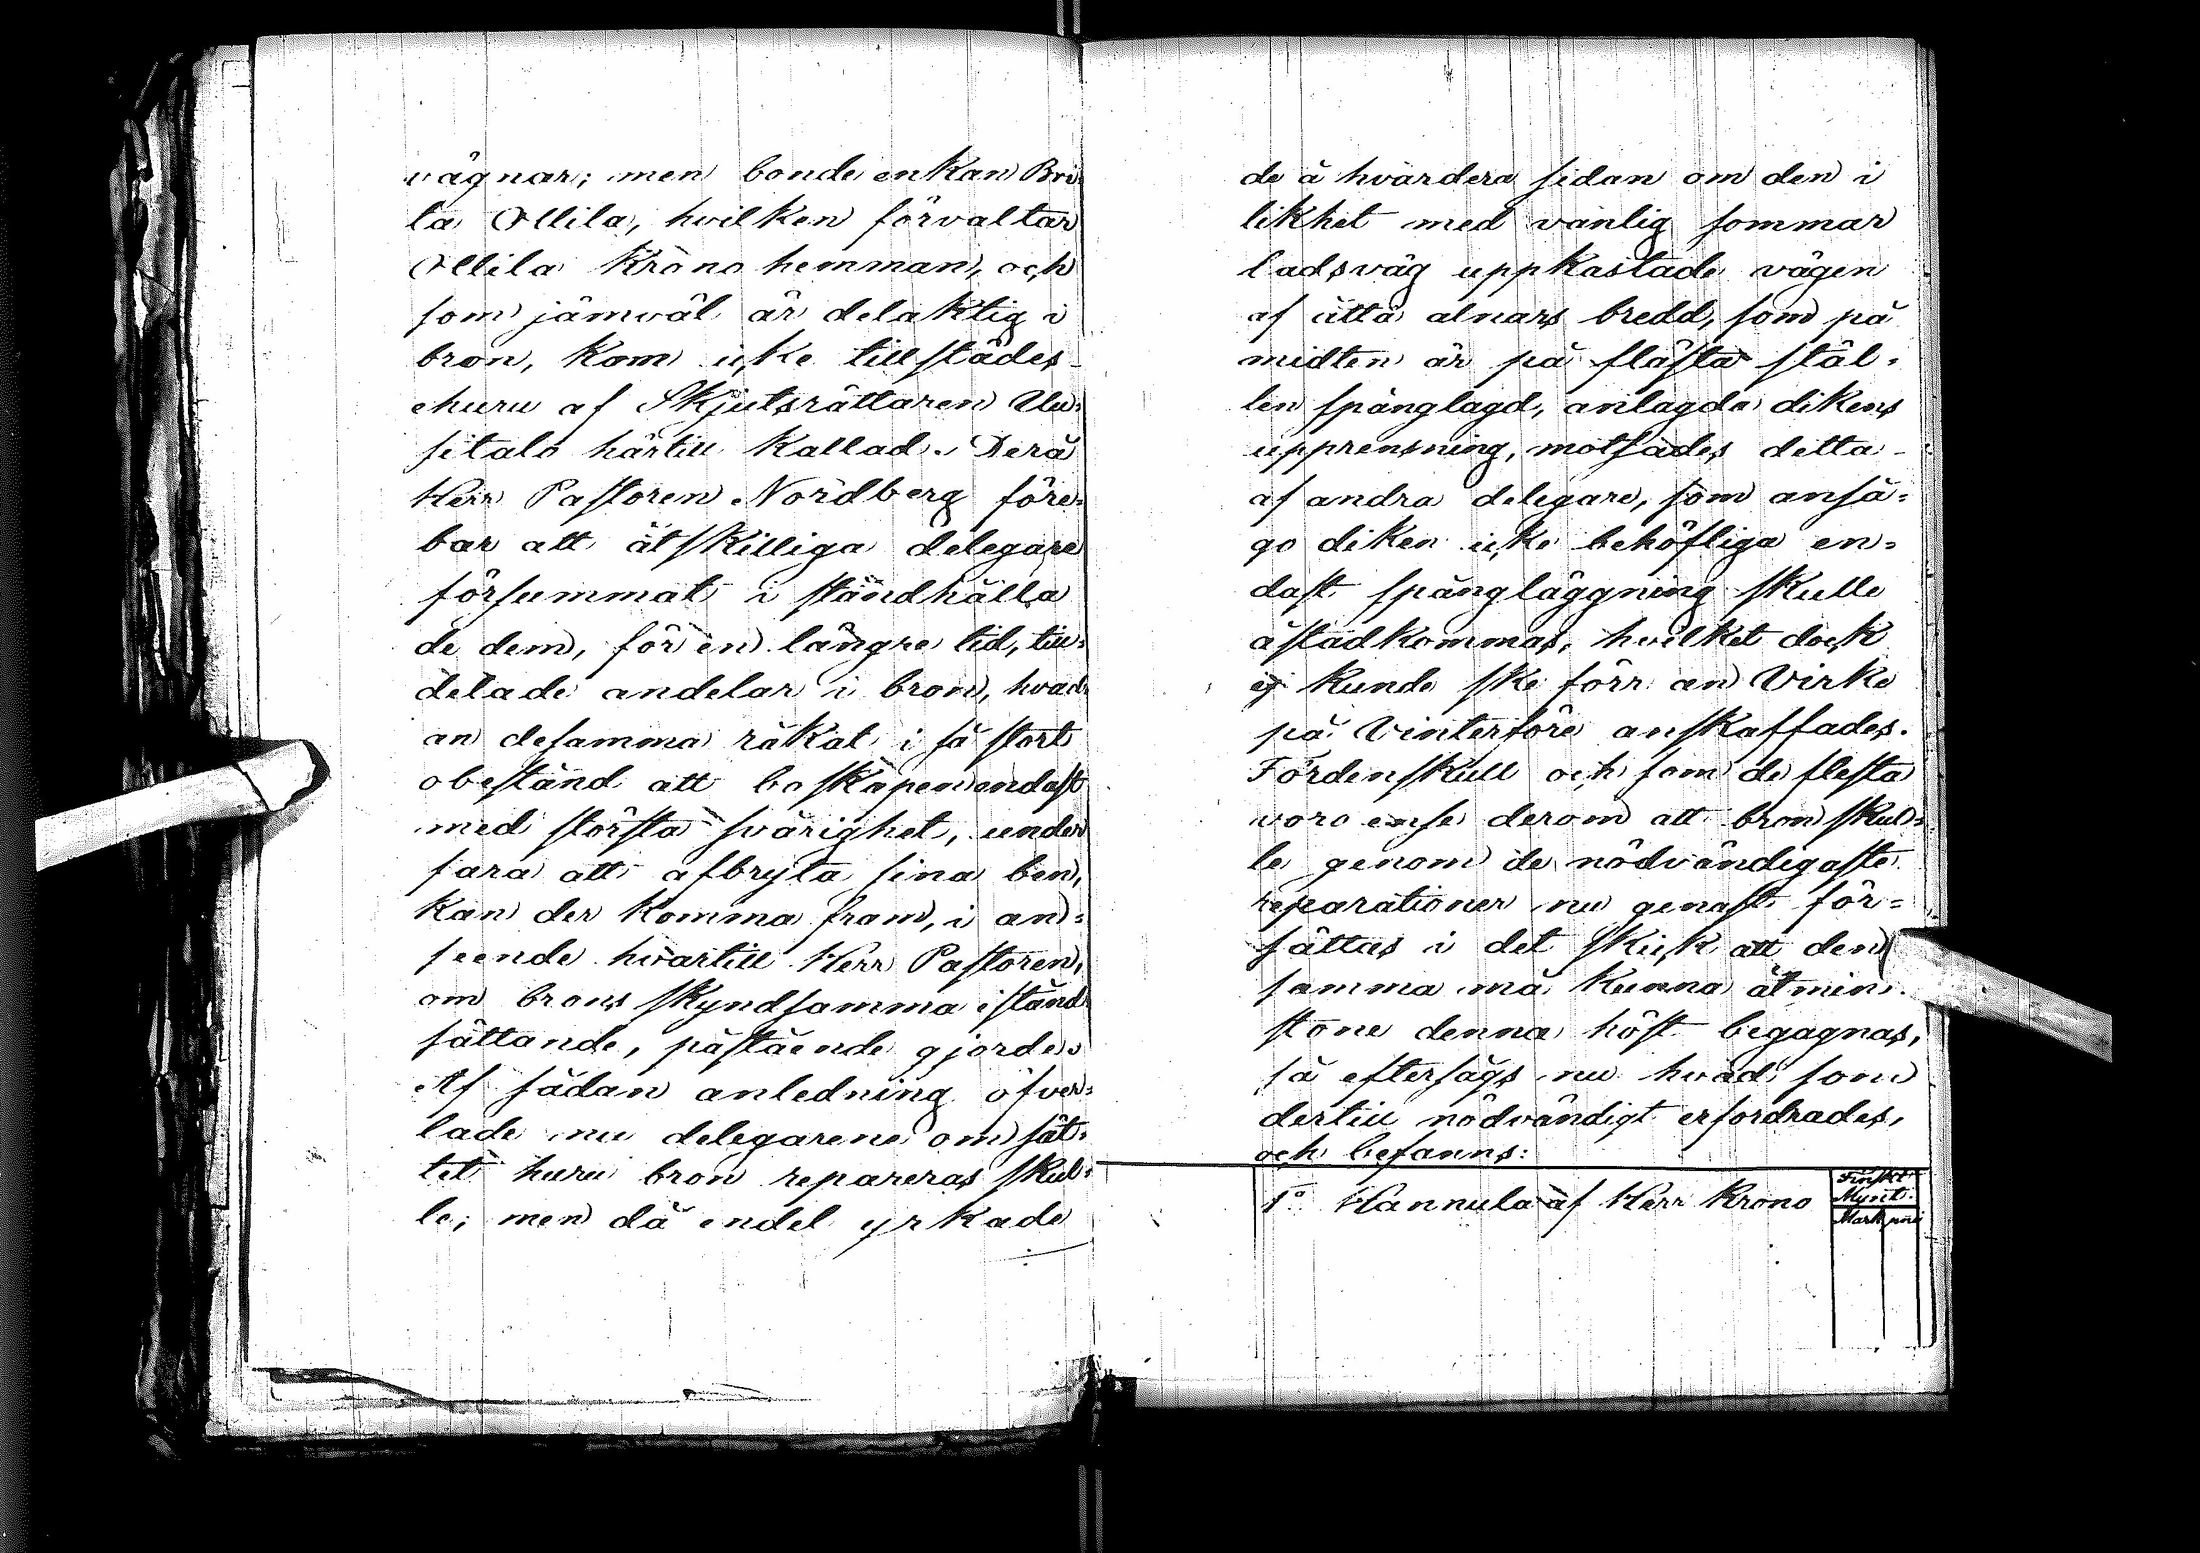 vägnar; men bonde enkan Bri¬
ta Ollila, hvilken förvaltar
Ollila Krono hemman, och
som jämväl är delaktig i
bron, kom icke tillstädes
ehuru af Skjutsrättaren Uu¬
sitalo härtill kallad. Derå
Herr Pastoren Nordberg före¬
bar att åtskilliga delegare
försummat i ståndhålla
de dem, för en längre tid, till¬
delade andelar i bron, hvad
an desamma råkat i så stort
obestånd att boskapen endast
med största svårighet, under
fara att afbryta sina ben,
kan der komma fram, i an¬
seende hvartill Herr Pastoren,
om brons skyndsamma istånd
sättande, påstående gjorde.
Af sådan anledning öfver¬
lade nu delegarene om sät¬
tet huru bron repareras skul¬
le; men då endel yrkade
de å hvardera sidan om den i
likhet med vanlig sommar
ladsväg uppkastade vägen
af åtta alnars bredd, som på
midten är på flästa stäl¬
len spånglagd, anlagda dikens
upprensning, motsades detta
af andra delegare, som anså¬
go diken icke behöfliga en¬
dast spångläggning skulle
åstadkommas, hvilket dock
ej kunde ske förr än Virke
på Vinterföre anskaffades.
Fördenskull och som de flesta
voro ense derom att bron skul¬
le genom de nödvändigaste
reparationer nu genast för¬
sättas i det skick att den
samma må kunna åtmin.
stone denna höst begagnas,
så eftersågs nu hvad som
dertill nödvändigt erfordrades,
och befanns:
1º Hannula af Herr Krono
Finskt
Mynt.
Mark pni